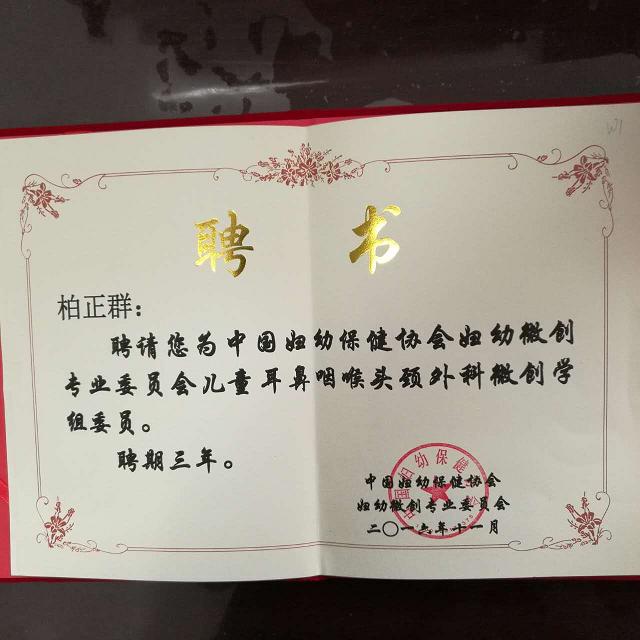 W1
聘 书
柏正群：
聘请您为中国妇幼保健协会妇幼微创
专业委员会儿童耳鼻咽喉头颈外科微创学
组委员。
聘期三年。
中国妇幼保健协会
中国妇幼保健协会
妇幼微创专业委员会
二〇一六年十一月